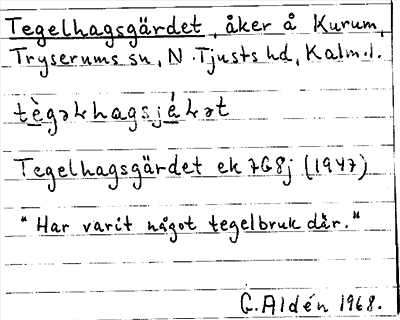 Tegelhagsgärdet, åker å Kurum,
Tryserums sn, N. Tjusts hd, Kalm. l.
tè̱gəⱡhagsjá̱ⱡət
Tegelhagsgärdet ek 7G8j (1947)
"Har varit något tegelbruk där."
G. Aldén 1968.